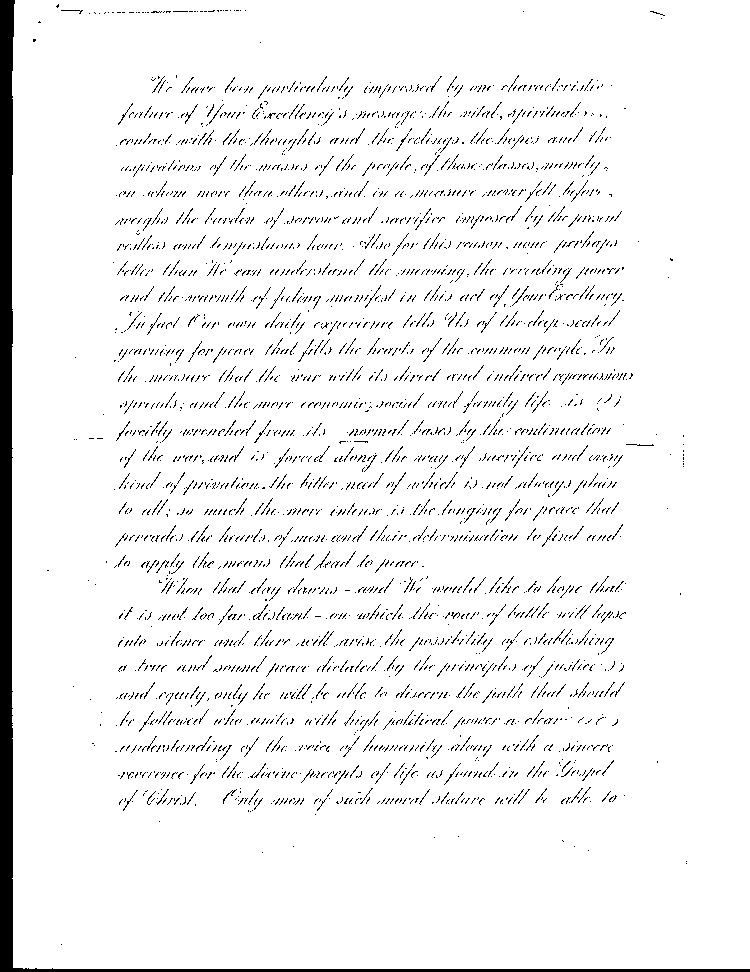 We have been particularly impressed by one characteristic
feature of Your Excellency's message: the vital, spiritual
contact with the thoughts and the feelings, the hopes and the
aspirations of the masses of the people, of those classes, namely,
on whom more than others, and in a measure never felt before,
weighs the burden of sorrow and sacrifice imposed by the present
restless and tempestuous hour. Also for this reason, none perhaps
better than We can understand the meaning, the revealing power
and the warmth of feeling manifest in this act of Your Excellency.
In fact Our own daily experience tells Us of the deep-seated
yearning for peace that fills the hearts of the common people. In
the measure that the war with its direct and indirect repercussions
spreads; and the more economic, social and family life is
forcibly wrenched from its normal bases by the continuation
of the war, and is forced along the way of sacrifice and every
kind of privation, the bitter need of which is not always plain
to all; so much the more intense is the longing for peace that
pervades the hearts of men and their determination to find and
to apply the means that lead to peace.
When that day dawns - and We would like to hope that
it is not too far distant - on which the roar of battle will lapse
into silence and there will arise the possibility of establishing
a true and sound peace dictated by the principles of justice
and equity, only he will be able to discern the path that should
be followed who unites with high political power a clear
understanding of the voice of humanity along with a sincere
reverence for the divine precepts of life as found in the Gospel
of Christ. Only men of such moral stature will be able to